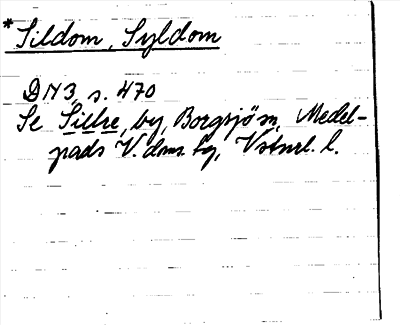 *Sildom, Syldom
DN 3, s. 470
Se Sillre, by, Borgsjö sn, Medel-
pads V. doms. tg, Vstnrl. l.